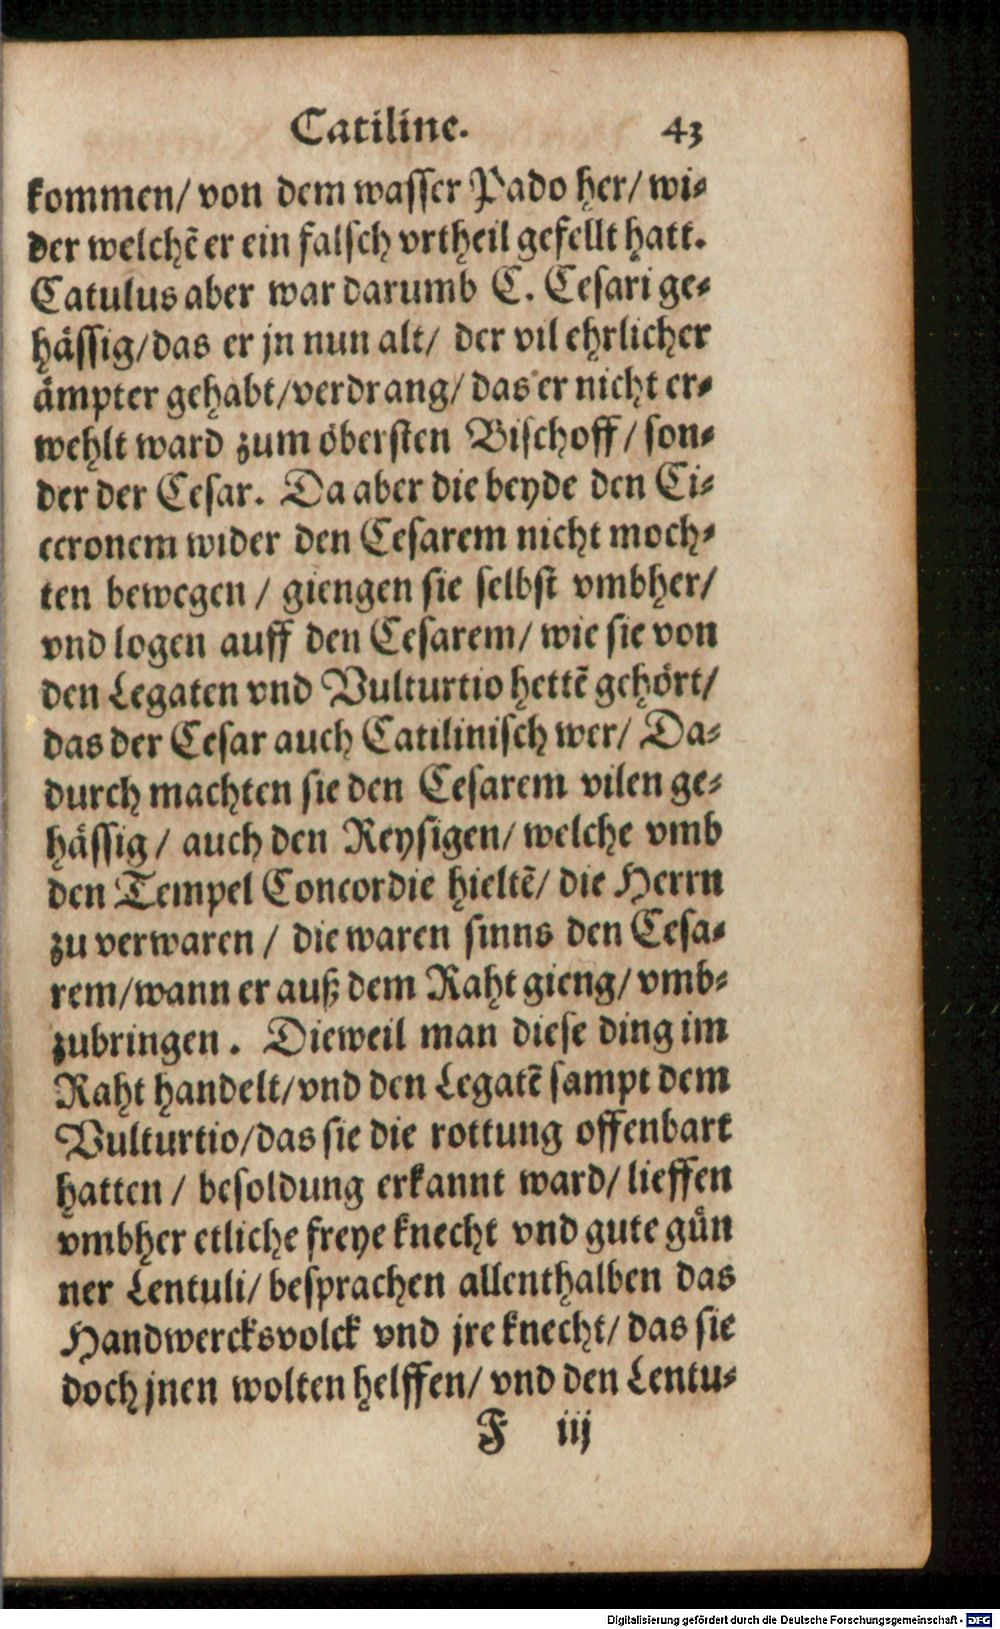 Catiline. 43
kommen/ von dem wasser Pado her/ wi⸗
der welchē er ein falsch vrtheil gefellt hatt.
Catulus aber war darumb C. Cesari ge⸗
hässig/ das er jn nun alt/ der vil ehrlicher
ämpter gehabt/ verdrang/ das er nicht er⸗
wehlt ward zum öbersten Bischoff/ son⸗
der der Cesar. Da aber die beyde den Ci⸗
ceronem wider den Cesarem nicht moch⸗
ten bewegen / giengen sie selbst vmbher/
vnd logen auff den Cesarem/ wie sie von
den Legaten vnd Vulturtio hettē gehört/
das der Cesar auch Catilinisch wer/ Da⸗
durch machten sie den Cesarem vilen ge⸗
hässig / auch den Reysigen/ welche vmb
den Tempel Concordie hieltē/ die Herrn
zu verwaren / die waren sinns den Cesa⸗
rem/ wann er auß dem Raht gieng/ vmb⸗
zubringen . Dieweil man diese ding im
Raht handelt/ vnd den Legatē sampt dem
Vulturtio/ das sie die rottung offenbart
hatten / besoldung erkannt ward/ lieffen
vmbher etliche freye knecht vnd gute gün
ner Lentuli/ besprachen allenthalben das
Handwercksvolck vnd jre knecht/ das sie
doch jnen wolten helffen/ vnd den Lentu⸗
F iij
Digitalisierung gefördert durch die Deutsche Forschungsgemeinschaft - DFG